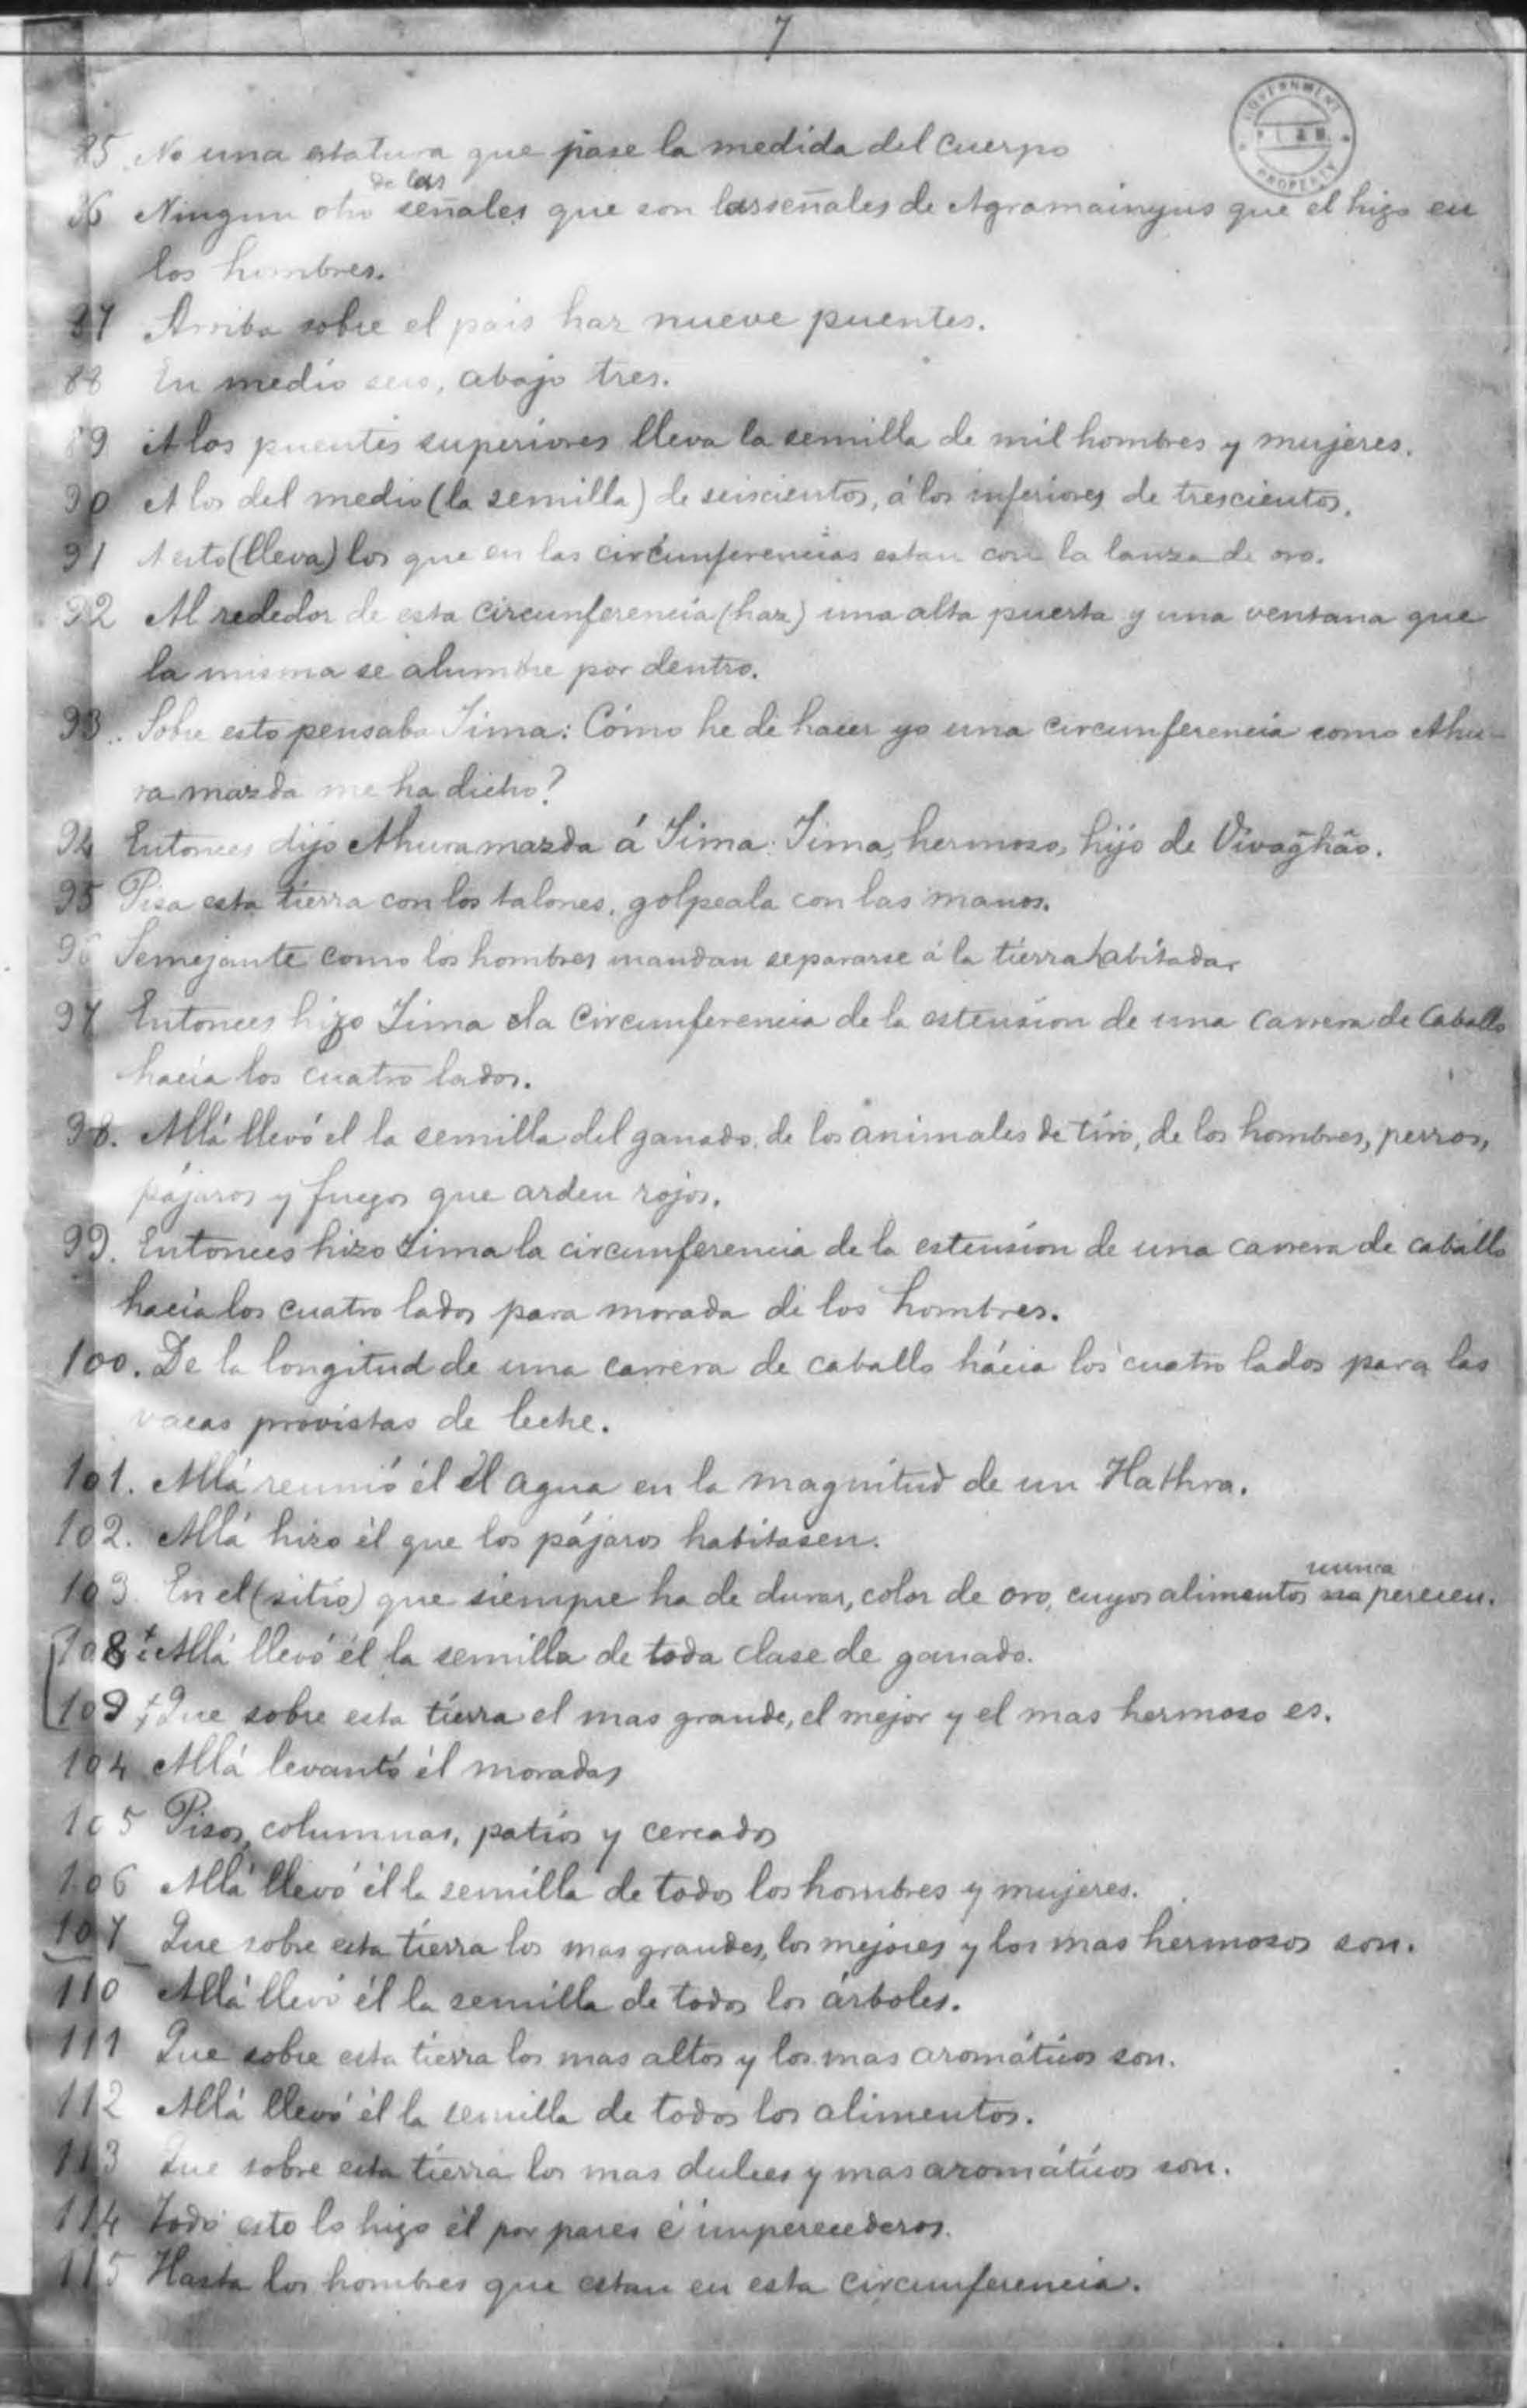 7
GOVERNMENT PROPERTY
85 No una estatura que pase la medida del cuerpo
de las
86 Ningun otro señales que son las señales de Agramainyus que el hizo en
los hombres.
87 Arriba sobre el pais haz nueve puentes.
88 En medio seis, abajo tres.
89 A los puentes superiores lleva la semilla de mil hombres y mujeres.
90 A los del medio (la semilla) de seiscientos, á los inferiores de trescientos.
91 A esto (lleva) los que en las circunferencias estan con la lanza de oro.
92 Al rededor de esta circunferencia (haz) una alta puerta y una ventana que
la misma se alumbre por dentro.
93. Sobre esto pensaba Jima: Cómo he de hacer yo una circunferencia como Ahu-
ra mazda me ha dicho?
94 Entonces dijo Ahuramazda á Jima: Jima, hermoso, hijo de Vivaghão.
95 Pisa esta tierra con los talones, golpeala con las manos.
96 Semejante como los hombres mandan separarse á la tierra habitada.
97 Entonces hizo Jima la circunferencia de la estension de una carrera de caballo
hacia los cuatro lados.
98. Allá llevó el la semilla del ganado, de los animales de tiro, de los hombres, perros,
pájaros y fuegos que arden rojos.
99. Entonces hizo Jima la circunferencia de la estension de una carrera de caballo
hacia los cuatro lados para morada de los hombres.
100. De la longitud de una carrera de caballo hácia los cuatro lados para las
vacas provistas de leche.
101. Allá reunió él el agua en la magnitud de un Hathra.
102. Allá hizo él que los pájaros habitasen.
nunca
103. En el (sitio) que siempre ha de durar, color de oro, cuyos alimentos no perecen.
108 + Allá llevó él la semilla de toda clase de ganado.
109 + Que sobre esta tierra el mas grande, el mejor y el mas hermoso es.
104 Allá levantó él moradas
105 Pisos, columnas, patios y cercados
106 Allá llevó él la semilla de todos los hombres y mujeres.
107 Que sobre esta tierra los mas grandes, los mejores y los mas hermosos son.
110 Allá llevó él la semilla de todos los árboles.
111 Que sobre esta tierra los mas altos y los mas aromáticos son.
112 Allá llevó él la semilla de todos los alimentos.
113 Que sobre esta tierra los mas dulces y mas aromáticos son.
114 Todo esto lo hizo él por pares é imperecederos.
115 Hasta los hombres que estan en esta circunferencia.